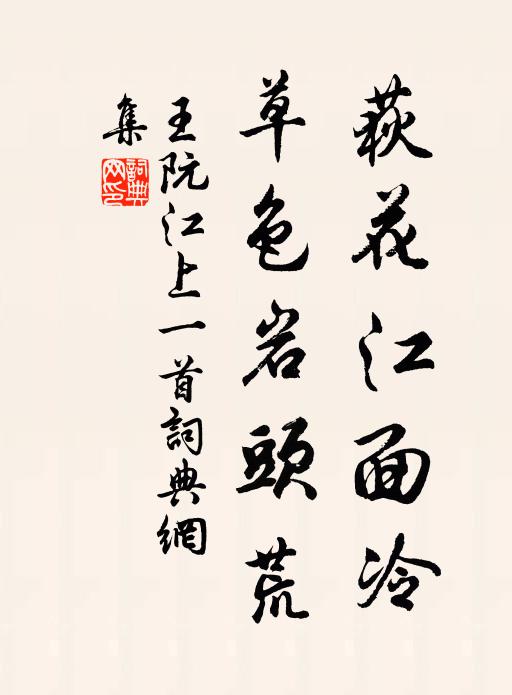 萩花江面冷
草色岩頭荒
王阮江上一首詞典網
集
詞典
网印